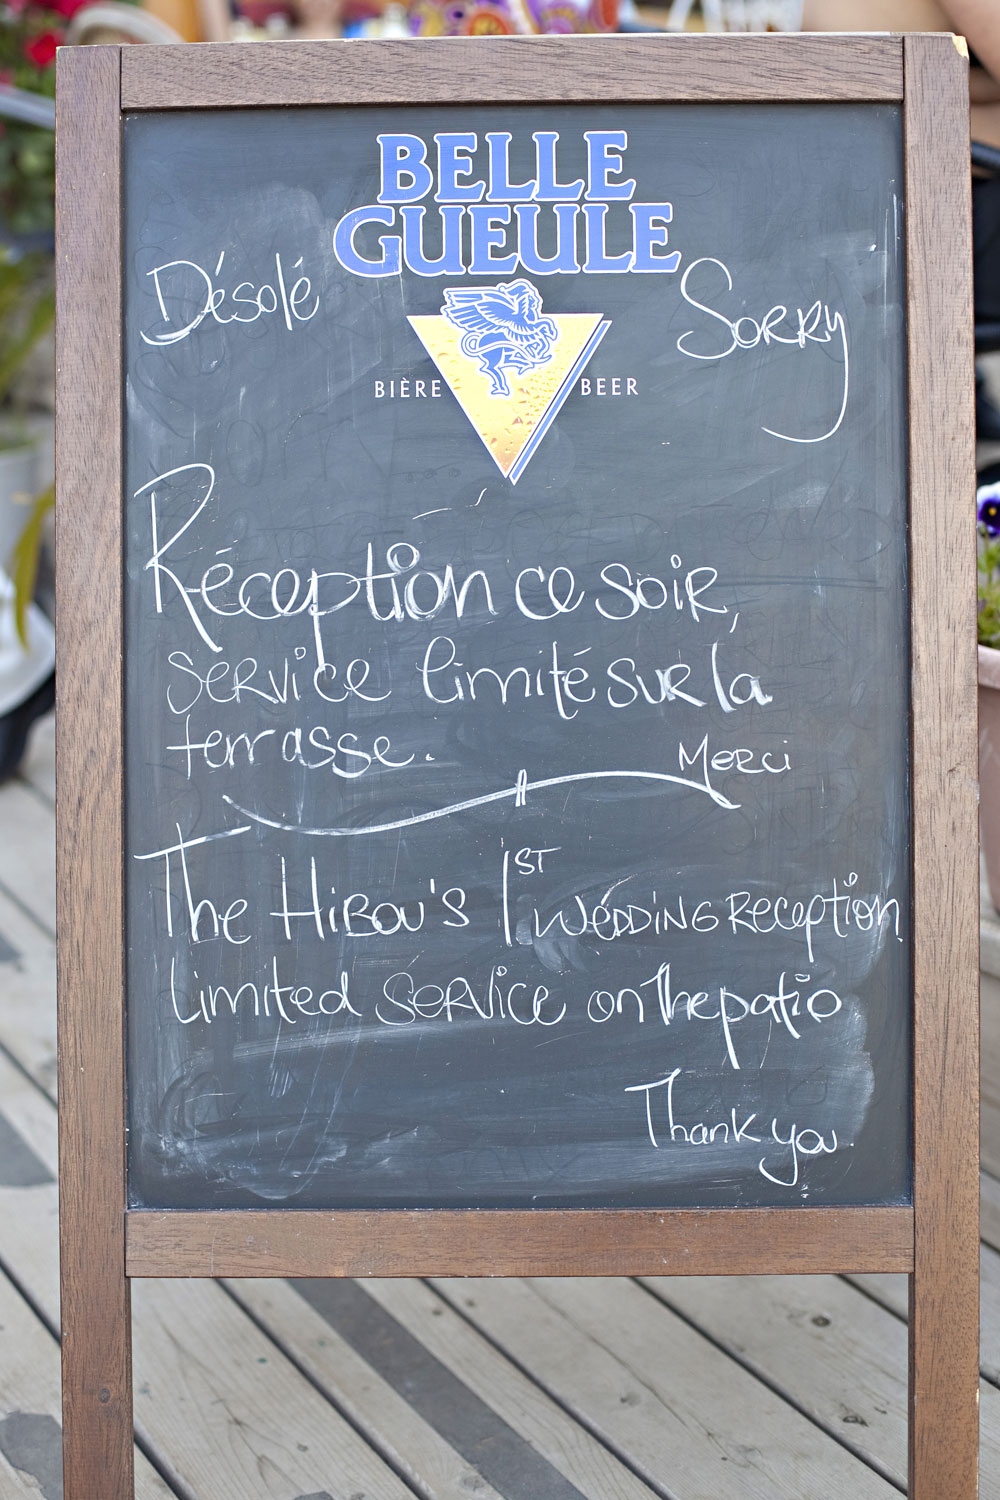 BELLE
GUEULE
Désolé
Sorry
BIÈRE BEER
Réception ce soir,
service limité sur la
terrasse.
Merci
The Hibou's 1ST Wedding Reception
Limited service on the patio
Thank you